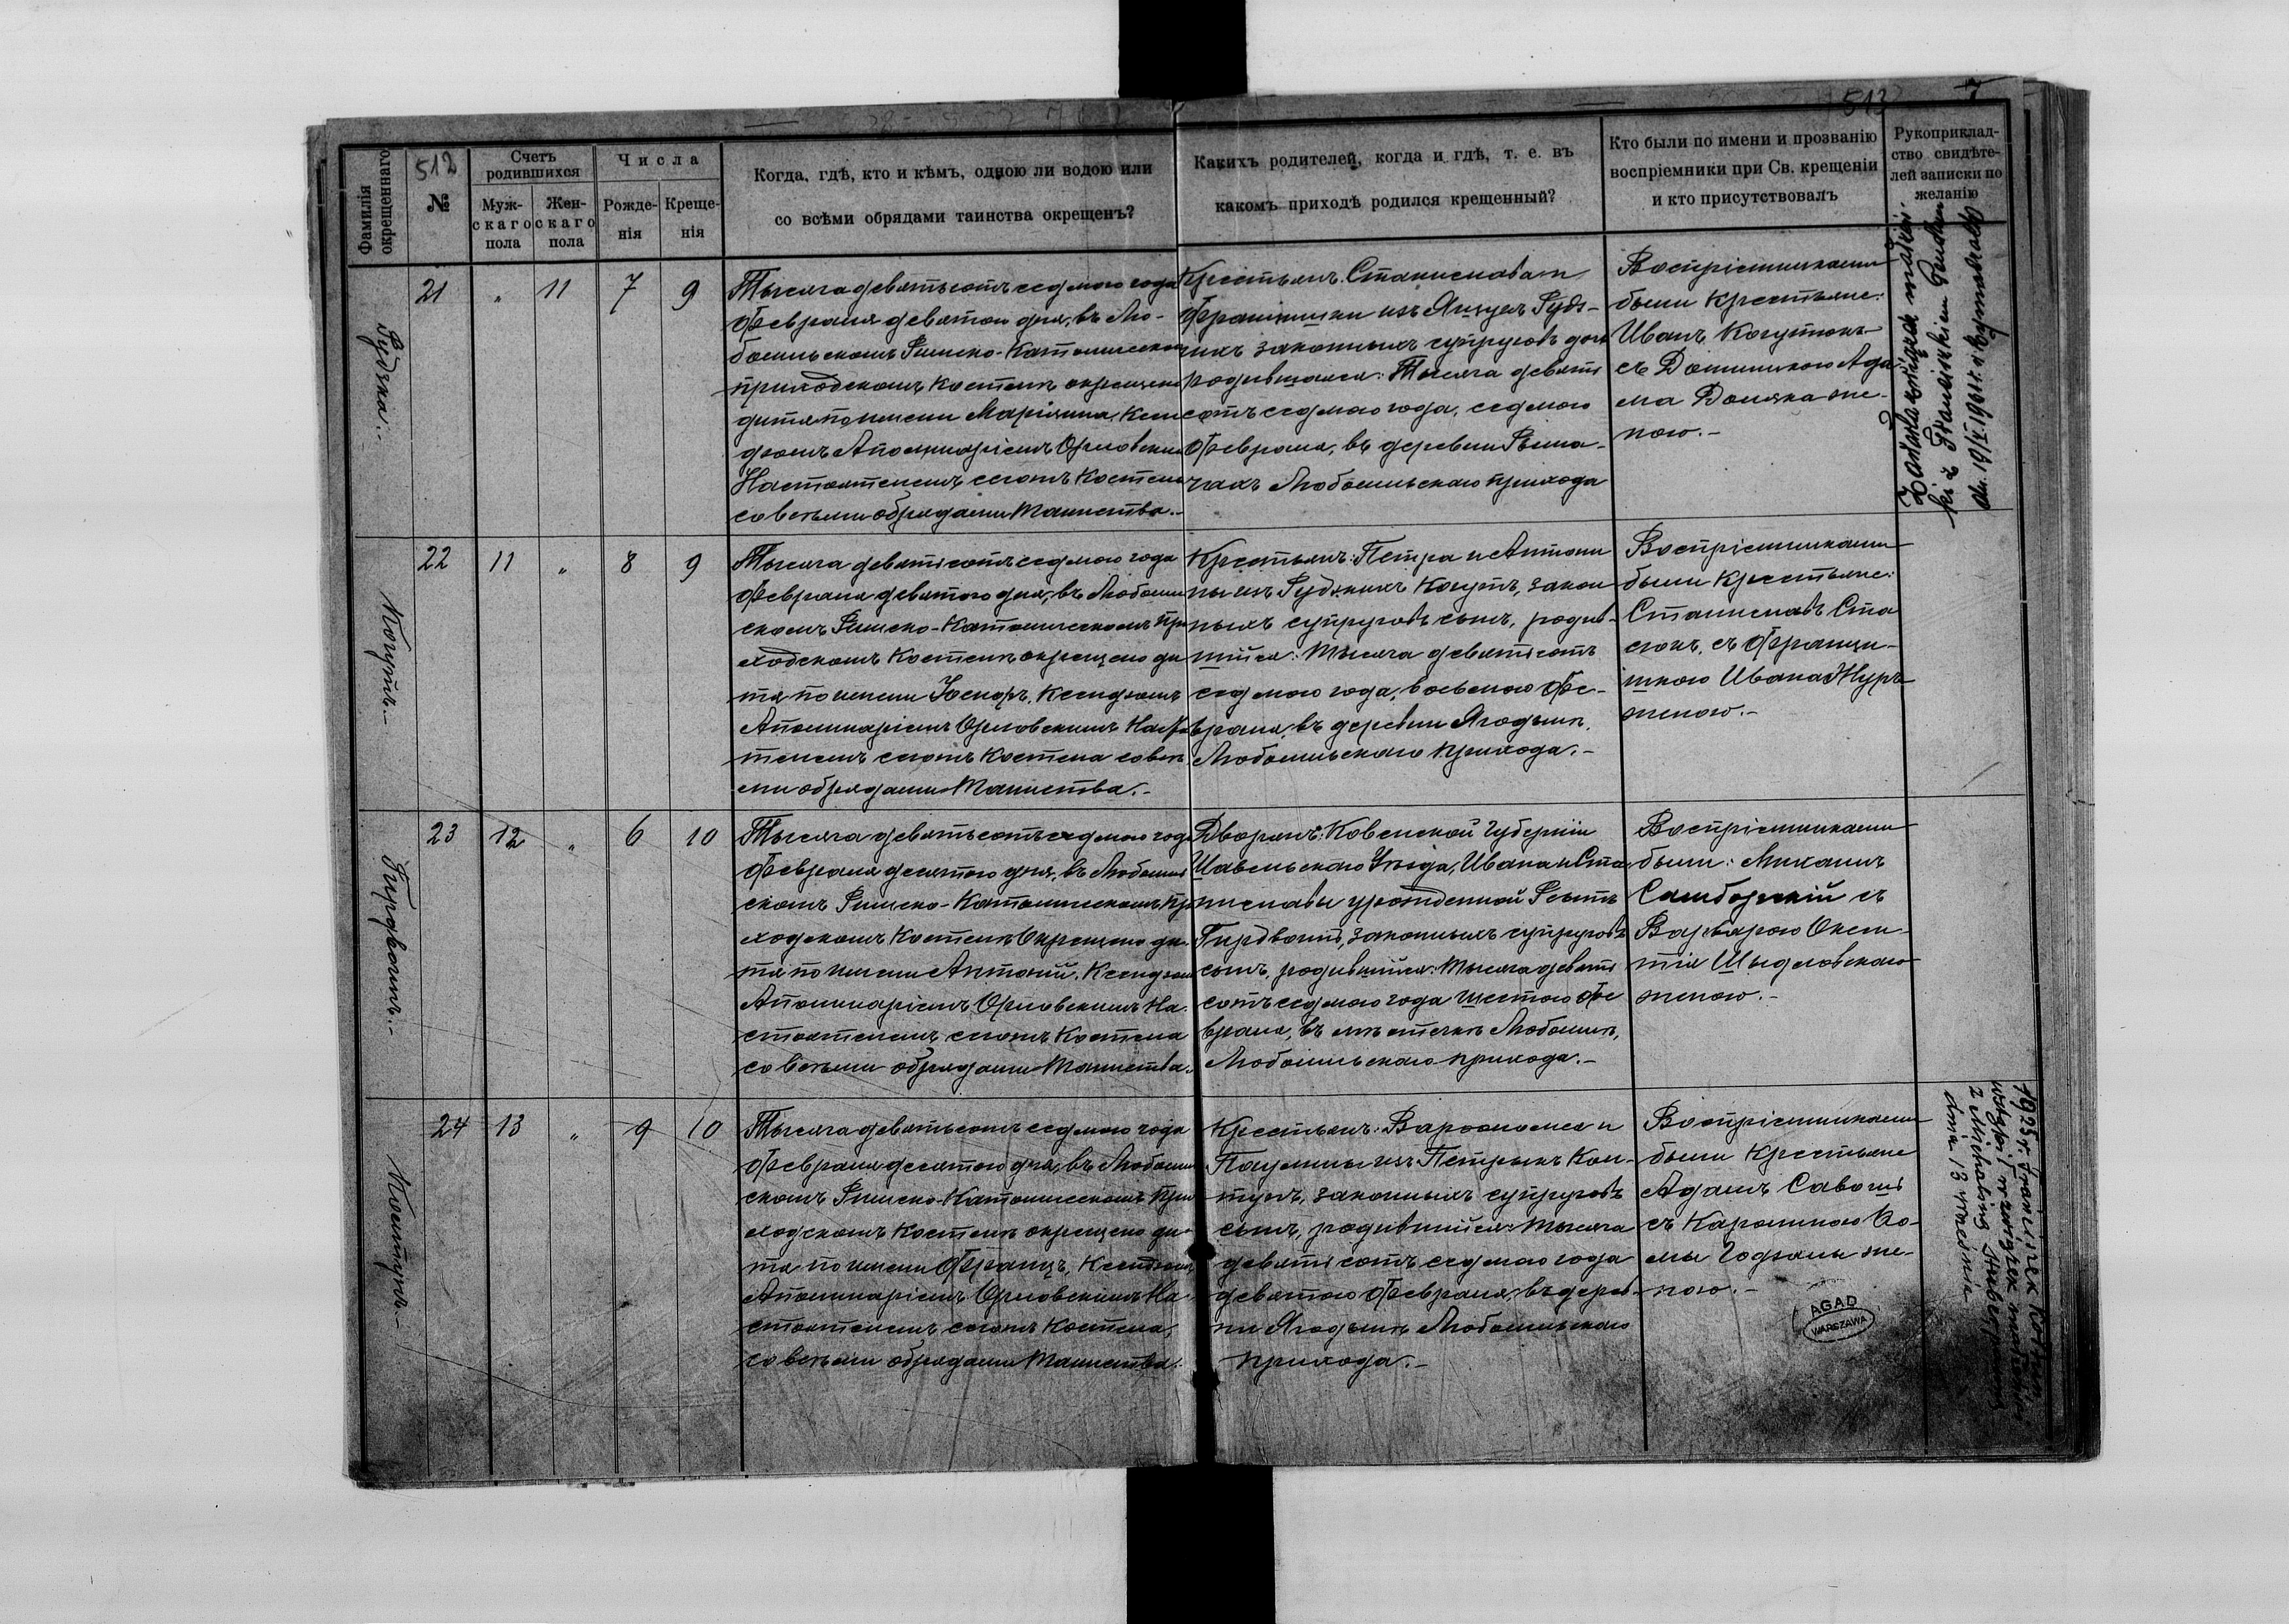 512
513
Фамилія окрещеннаго
№
Счетъ родившихся
Мужскаго пола
Женскаго пола
Числа
Рожденія
Крещенія
Когда, гдѣ, кто и кѣмъ, одною ли водою или
со всѣми обрядами таинства окрещенъ?
Какихъ родителей, когда и гдѣ, т. е. въ
какомъ приходѣ родился крещенный?
Кто были по имени и прозванію
воспріемники при Св. крещеніи
и кто присутствовалъ
Рукоприклад-
ство свидѣте-
лей записки по
желанію
Рудзка.
21 " 11 7 9
Тысяча девятьсотъ седмого года
Февраля девятого дня, въ Лю-
бомльскомъ Римско-Католическомъ
приходскомъ Костелѣ окрещено
дитя по имени Маріянна, Ксен
дзомъ Аполинаріемъ Орловскимъ
Настоятелемъ сегожъ Костела
со всѣми обрядами Таинства.-
Крестьянъ: Станислава и
Францишки изъ Яцулъ Рудз-
кихъ законныхъ супруговъ дочь
родившаяся: Тысяча девять
сотъ седмого года, седмого
Февраля, въ деревни Рыма-
чахъ Любомльскаго прихода
Воспріемниками
были Крестьяне:
Иванъ Когутюкъ
съ Доминикою Ада
ма Доляка же-
ною.-
22 11 " 8 9
Когутъ.-
Тысяча девятьсотъ седмого года
Февраля девятого дня, въ Любомль
скомъ Римско-Католическомъ При
ходскомъ Костелѣ окрещено ди
тя по имени Іосифъ, Ксендзомъ
Аполинаріемъ Орловскимъ Настоя
телемъ сегожъ Костела со всѣ
ми обрядами Таинства.-
Крестьянъ: Петра и Антони
ны изъ Рудзкихъ Когутъ, закон
ныхъ супруговъ сынъ, родив-
шійся: Тысяча девятьсотъ
седмого года, восьмого Фе-
враля, въ деревни Ягодынѣ,
Любомльскаго прихода.-
Воспріемниками
были Крестьяне:
Станиславъ Ста
сюкъ, съ Францы-
шкою Ивана Журъ
женою.-
23 12 " 6 10
Гирдвоинъ.-
Тысяча девятьсотъ седмого года
Февраля десятого дня, въ Любомль
скомъ Римско-Католическомъ При
ходскомъ Костелѣ Окрещено ди-
тя по имени Антоній, Ксендзомъ
Аполинаріемъ Орловскимъ На-
стоятелемъ сегожъ Костела
со всѣми обрядами Таинства.
Дворянъ: Ковенской Губерніи
Шавельскаго Уѣзда, Ивана и Ста
ниславы урожденной
Гирдвоинъ, законныхъ супруговъ
сынъ, родившійся: Тысяча девять
сотъ седмого года шестого Фе
враля, въ мѣстечкѣ Любомлѣ,
Любомльскаго прихода.-
Воспріемниками
были: Михаилъ
Самборскій съ
Варварою
Шыдловскаго
женою.-
24 13 " 9 10
Тысяча девятьсотъ седмого года
Февраля десятого дня, въ Любомль
скомъ Римско-Католическомъ При
ходскомъ Костелѣ окрещено ди-
тя по имени Францъ, Ксендзомъ
Аполинаріемъ Орловскимъ На-
стоятелемъ сегожъ Костела,
со всѣми обрядами Таинства.
Крестьянъ: Варфоломея и
законныхъ супруговъ
сынъ, родившійся: Тысяча
девятьсотъ седмого года
девятого Февраля, въ дерев-
ни Ягодынѣ Любомльскаго
прихода.-
Воспріемниками
были Крестьяне
Адамъ Савошъ
съ Каролиною
же-
ною.-
1925 r. Franciszek
związek małżeński
dnia 18 września
AGAD
WARSZAWA